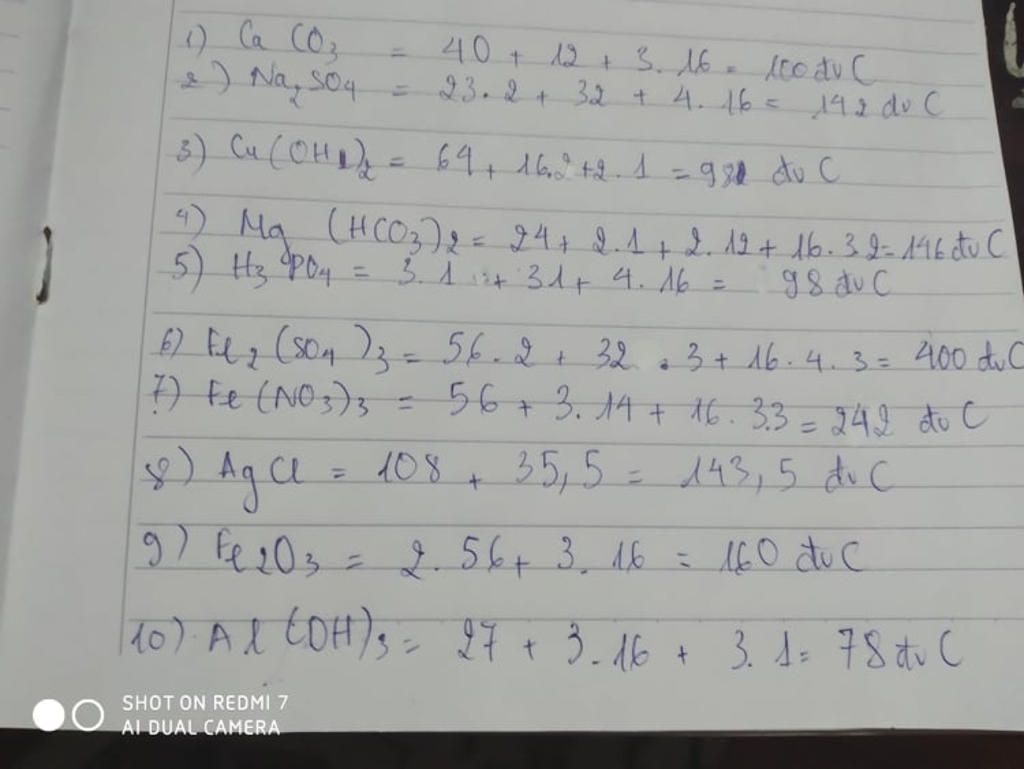 1) CaCO3 = 40 + 12 + 3.16 = 100 đvC
2) Na2SO4 = 23.2 + 32 + 4.16 = 142 đvC
3) Cu(OH)2 = 64 + 16.2 + 2.1 = 98 đvC
4) Mg(HCO3)2 = 24 + 2.1 + 2.12 + 16.3.2 = 146 đvC
5) H3PO4 = 3.1 + 31 + 4.16 = 98 đvC
6) Fe2(SO4)3 = 56.2 + 32.3 + 16.4.3 = 400 đvC
7) Fe(NO3)3 = 56 + 3.14 + 16.3.3 = 242 đvC
8) AgCl = 108 + 35,5 = 143,5 đvC
9) Fe2O3 = 2.56 + 3.16 = 160 đvC
10) Al(OH)3 = 27 + 3.16 + 3.1 = 78 đvC
SHOT ON REDMI 7
AI DUAL CAMERA